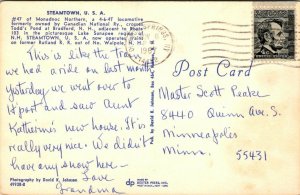 STEAMTOWN, U. S. A.
#47 of Monadnoc Northern, a 4-6-4T locomotive
formerly owned by Canadian National Ry, crosses
Todd's Pond at Bradford, N. H., adjacent to Route
103 in the picturesque Lake Sunapee region of
N. H. STEAMTOWN, U. S. A. now operates trains
on former Rutland R. R. out of No. Walpole, N. H.
This is like the train
we had a ride on last month
yesterday we went over to
H port and saw Aunt
Katherine's new house. It is
really very nice. We didn't
have any snow here —
Love
Grandma
Photography by David R. Johnson
49138-B
Pub. by David R. Johnson
dp
Post Card
Master Scott Peake
8440 Quinn Ave. S.
Minneapolis
Minn.
55431